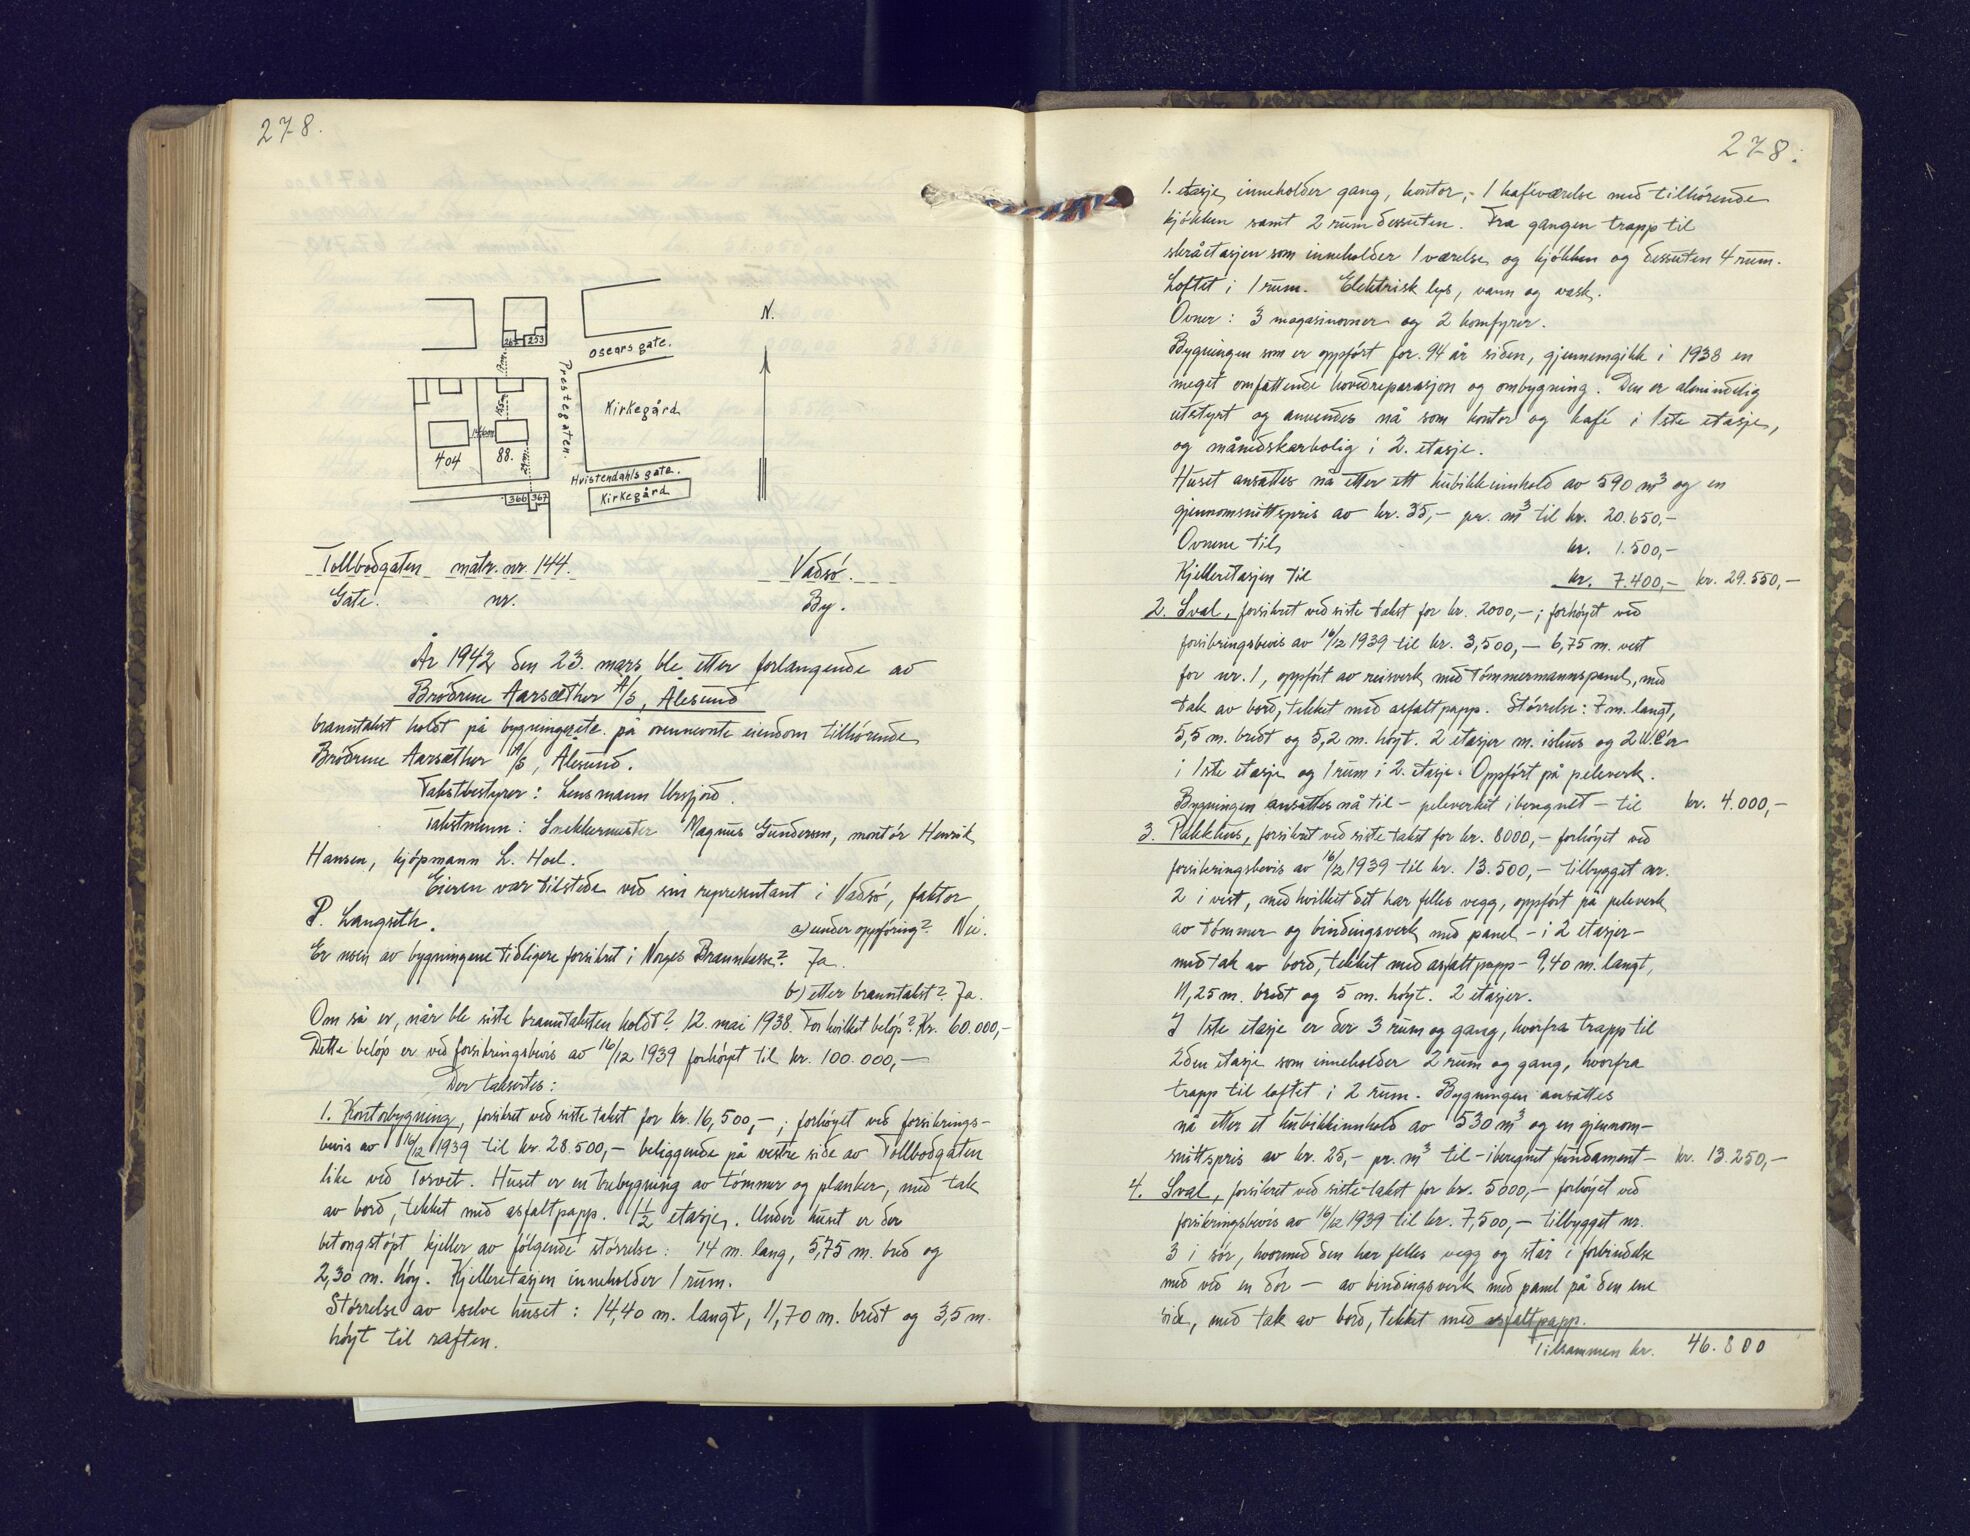 278.
Oscars gate.
Prestegaten.
Kirkegård
Hvistendahls gate.
Kirkegård
267 253
404
88.
366 367
N.
Tollbodgaten matr. nr. 144. Vadsö.
Gate. nr. By.
År 1942 den 23. mars ble etter forlangende av
Brödrene Aarsæther A/S, Ålesund
branntakst holdt på bygningene på ovennevnte eiendom tilhörende
Brödrene Aarsæther A/S, Ålesund.
Takstbestyrer: Lensmann Ursfjord.
Takstmenn: Snekkermester Magnus Gundersen, montör Henrik
Hansen, kjöpmann L. Hoel.
Eieren var tilstede ved sin representant i Vadsö, faktor
P. Langseth.
a) under oppföring? Nei.
Er noen av bygningene tidligere forsikret i Norges Brannkasse? Ja.
b) etter branntakst? Ja.
Om så er, når ble siste branntaksten holdt? 12. mai 1938. For hvilket belöp? Kr. 60.000,-
Dette belöp er ved forsikringsbevis av 16/12 1939 forhöyet til kr. 100.000,-
Der takseres:
1. Kontorbygning, forsikret ved siste takst for kr. 16,500,-; forhöyet ved forsikrings-
bevis av 16/12 1939 til kr. 28.500,- beliggende på vestre side av Tollbodgaten
like ved Torvet. Huset er en trebygning av tömmer og planker, med tak
av bord, tekket med asfaltpapp. 1½ etasje. Under huset er der
betongstöpt kjeller av fölgende störrelse: 14 m. lang, 5,75 m. bred og
2,30 m. höy. Kjelleretasjen inneholder 1 rum.
Störrelse av selve huset: 14,40 m. langt, 11,70 m. bredt og 3,5 m.
höyt til raften.
278.
1. etasje inneholder gang, kontor, 1 kaféværelse med tilhörende
kjökken samt 2 rum dessuten. Fra gangen trapp til
skråetasjen som inneholder 1 værelse og kjökken og dessuten 4 rum.
Loftet i 1 rum. Elektrisk lys, vann og vask.
Ovner: 3 magasinovner og 2 komfyrer.
Bygningen som er oppfört for 94 år siden, gjennemgikk i 1938 en
meget omfattende hovedreparasjon og ombygning. Den er almindelig
utstyrt og anvendes nå som kontor og kafé i 1ste etasje,
og månedskarbolig i 2. etasje.
Huset ansettes nå etter ett kubikkinnhold av 590 m³ og en
gjennomsnittspris av kr. 35,- pr. m³ til kr. 20.650,-
Ovnene til kr. 1.500,-
Kjelleretasjen til kr. 7.400,- kr. 29.550,-
2. Sval, forsikret ved siste takst for kr. 2000,-; forhöyet ved
forsikringsbevis av 16/12 1939 til kr. 3,500,- 6,75 m. vest
for nr. 1, oppfört av reisverk med tömmermannspanel, med
tak av bord, tekket med asfaltpapp. Störrelse: 7 m. langt,
5,5 m. bredt og 5,2 m. höyt. 2 etasjer m. ishus og 2 W.C'er
i 1ste etasje og 1 rum i 2. etasje. Oppfört på peleverk.
Bygningen ansettes nå til - peleverket iberegnet - til kr. 4.000,-
3. Pakkhus, forsikret ved siste takst for kr. 8000,- forhöyet ved
forsikringsbevis av 16/12 1939 til kr. 13.500,- tilbygget nr.
2 i vest, med hvilket det har felles vegg, oppfört på peleverk
av tömmer og bindingsverk med panel - i 2 etasjer -
med tak av bord, tekket med asfaltpapp - 9,40 m. langt,
11,25 m. bredt og 5 m. höyt. 2 etasjer.
I 1ste etasje er der 3 rum og gang, hvorfra trapp til
2den etasje som inneholder 2 rum og gang, hvorfra
trapp til loftet i 2 rum. Bygningen ansettes
nå etter et kubikkinnhold av 530 m³ og en gjennom-
snittspris av kr. 25,- pr. m³ til - iberegnet fundament - kr. 13.250,-
4. Sval, forsikret ved siste takst for kr. 5000,- forhöyet ved
forsikringsbevis av 16/12 1939 til kr. 7,500,- tilbygget nr.
3 i sör, hvormed den har felles vegg og står i forbindelse
med ved en dör - av bindingsverk med panel på den ene
side, med tak av bord, tekket med asfaltpapp.
Tilsammen kr. 46.800